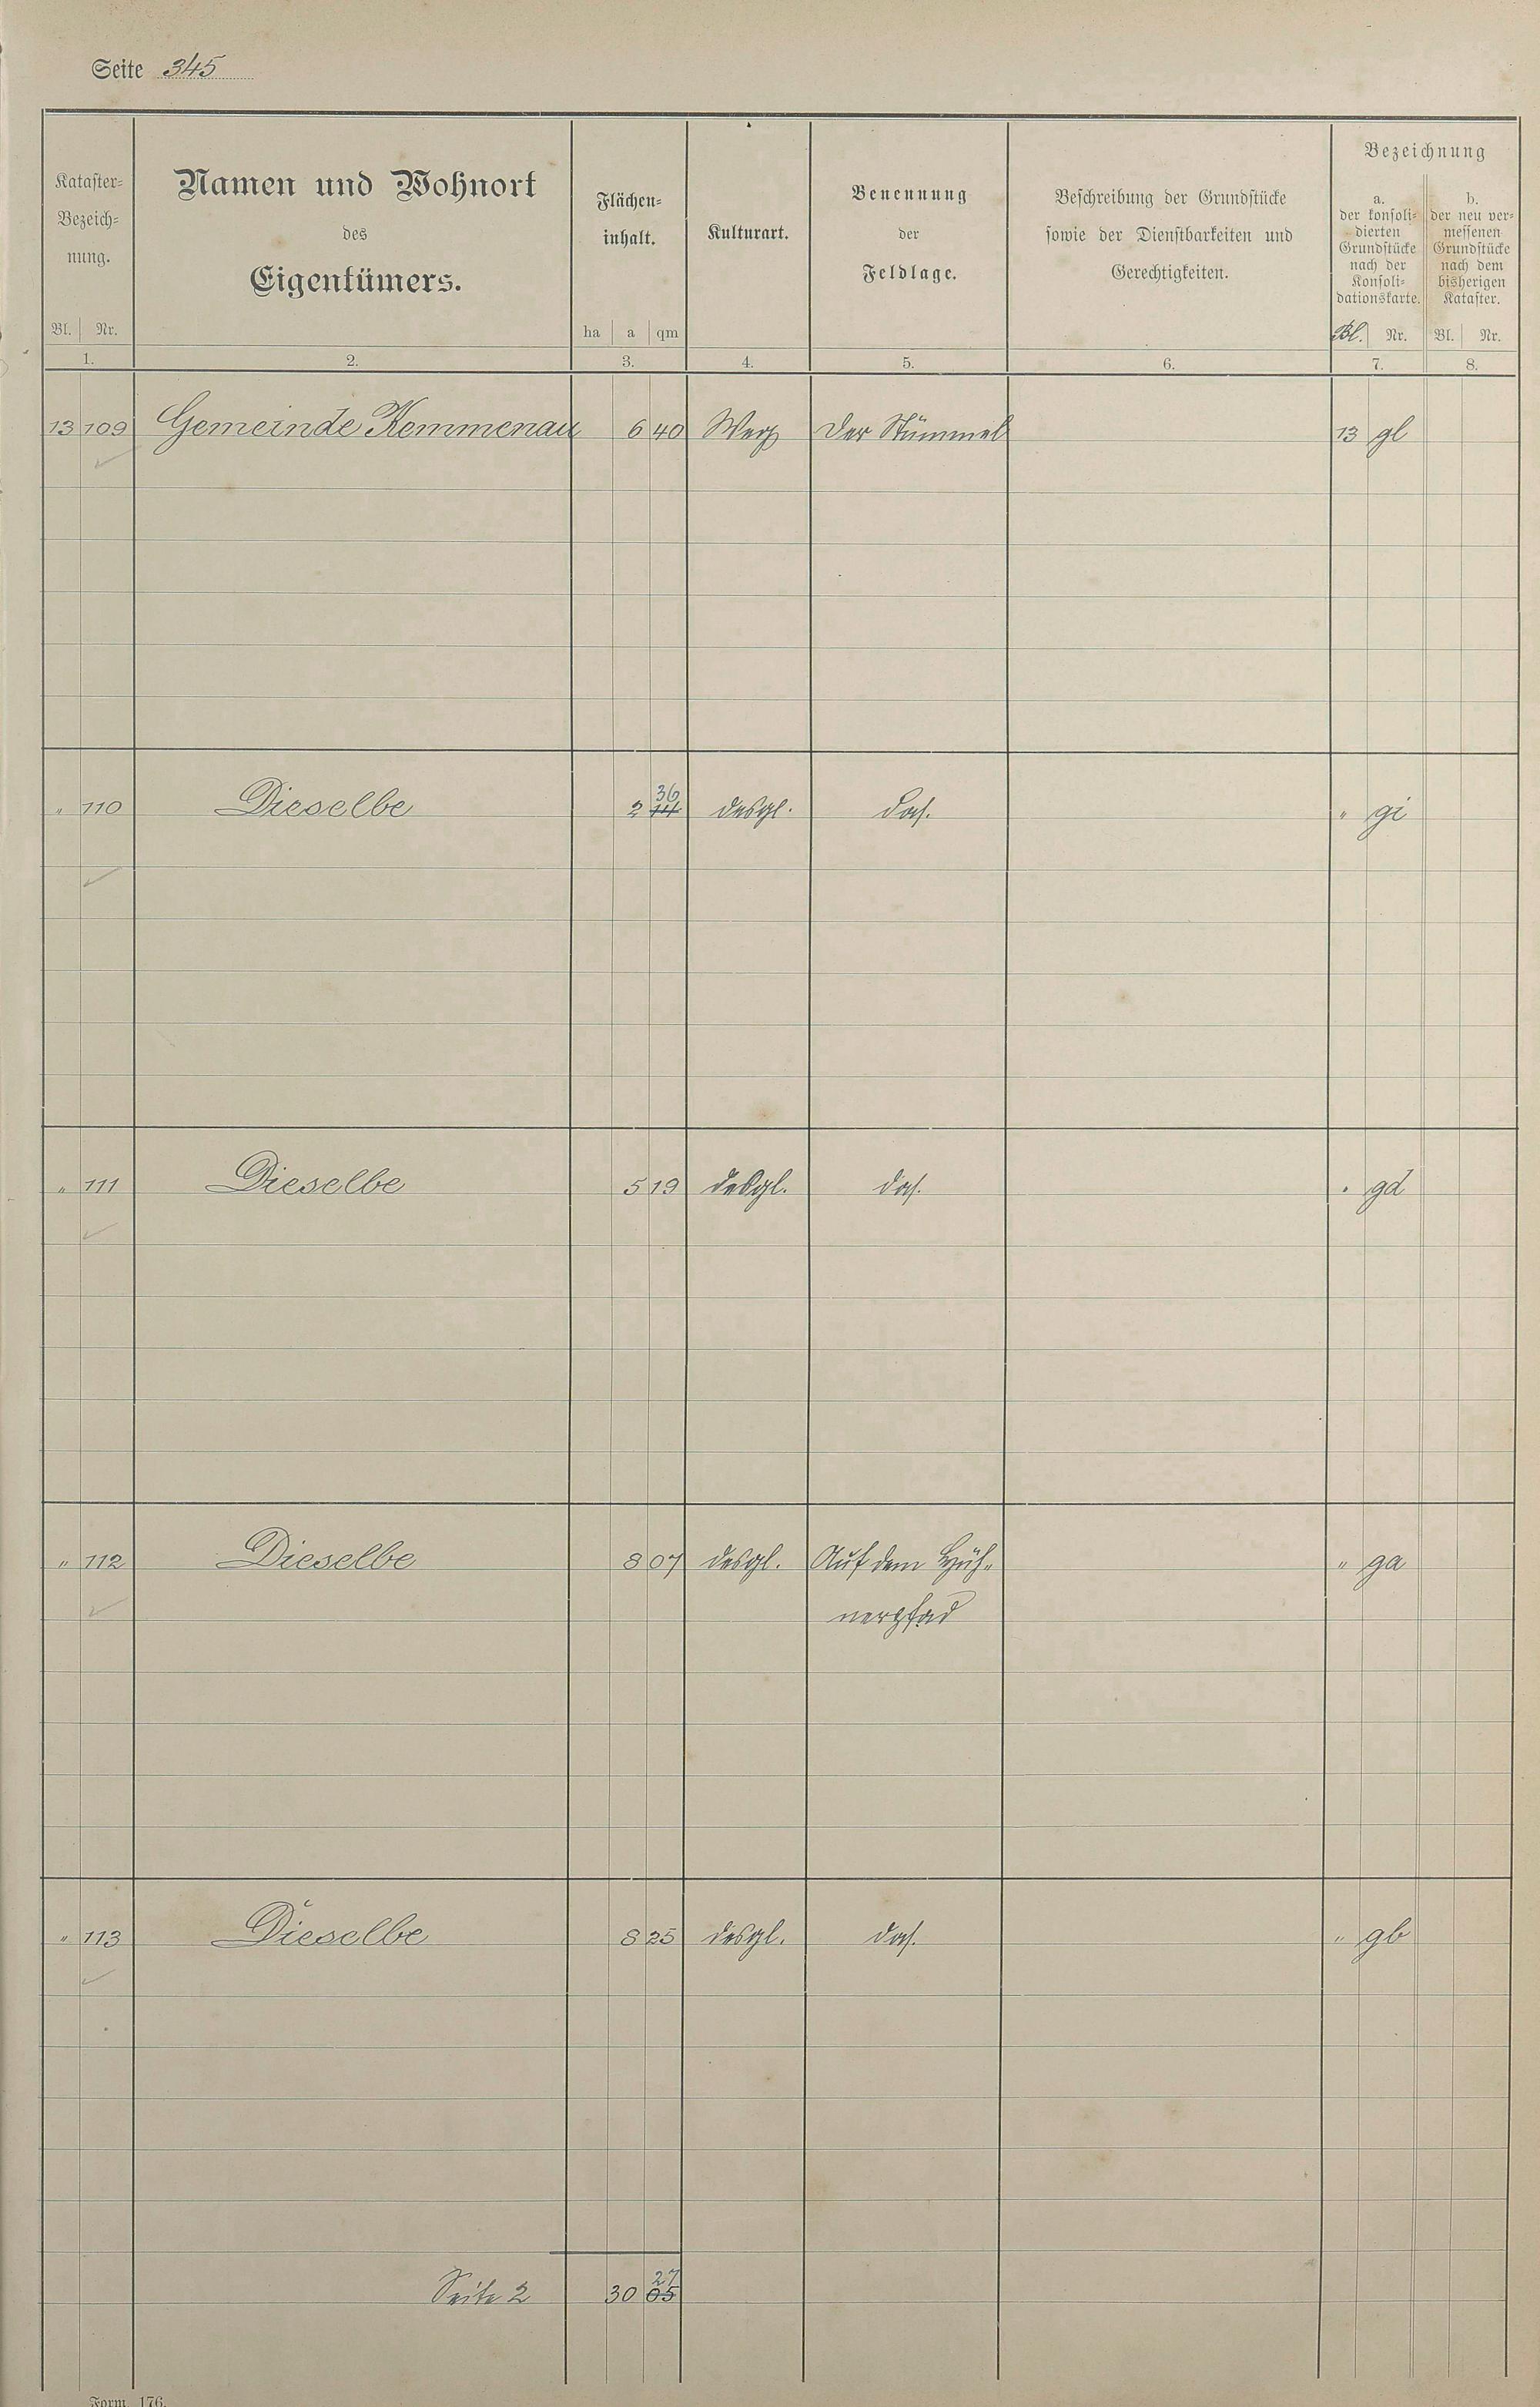 Seite 345
Kataster-Bezeich-nung. Namen und Wohnort des Eigentümers. Flächen-inhalt. Kulturart. Benennung der Feldlage. Beschreibung der Grundstücke sowie der Dienstbarkeiten und Gerechtigkeiten. Bezeichnung
a. der konsoli-dierten Grundstücke nach der Konsoli-dationskarte. b. der neu ver-messenen Grundstücke nach dem bisherigen Kataster.
Bl. Nr. ha a qm Bl. Nr. Bl. Nr.
1. 2. 3. 4. 5. 6. 7. 8.
13 109 Gemeinde Kemmenau 6 40 Weg Der Stümmel 13 gl
36
" 110 Dieselbe 2 14 desgl. das. " gi
" 111 Dieselbe 5 19 desgl. das. " gd
" 112 Dieselbe 8 07 desgl. Auf dem Hüh- " ga
nerpfad
" 113 Dieselbe 8 25 desgl. das. " gb
27
Seite 2 30 05
Form. 176.